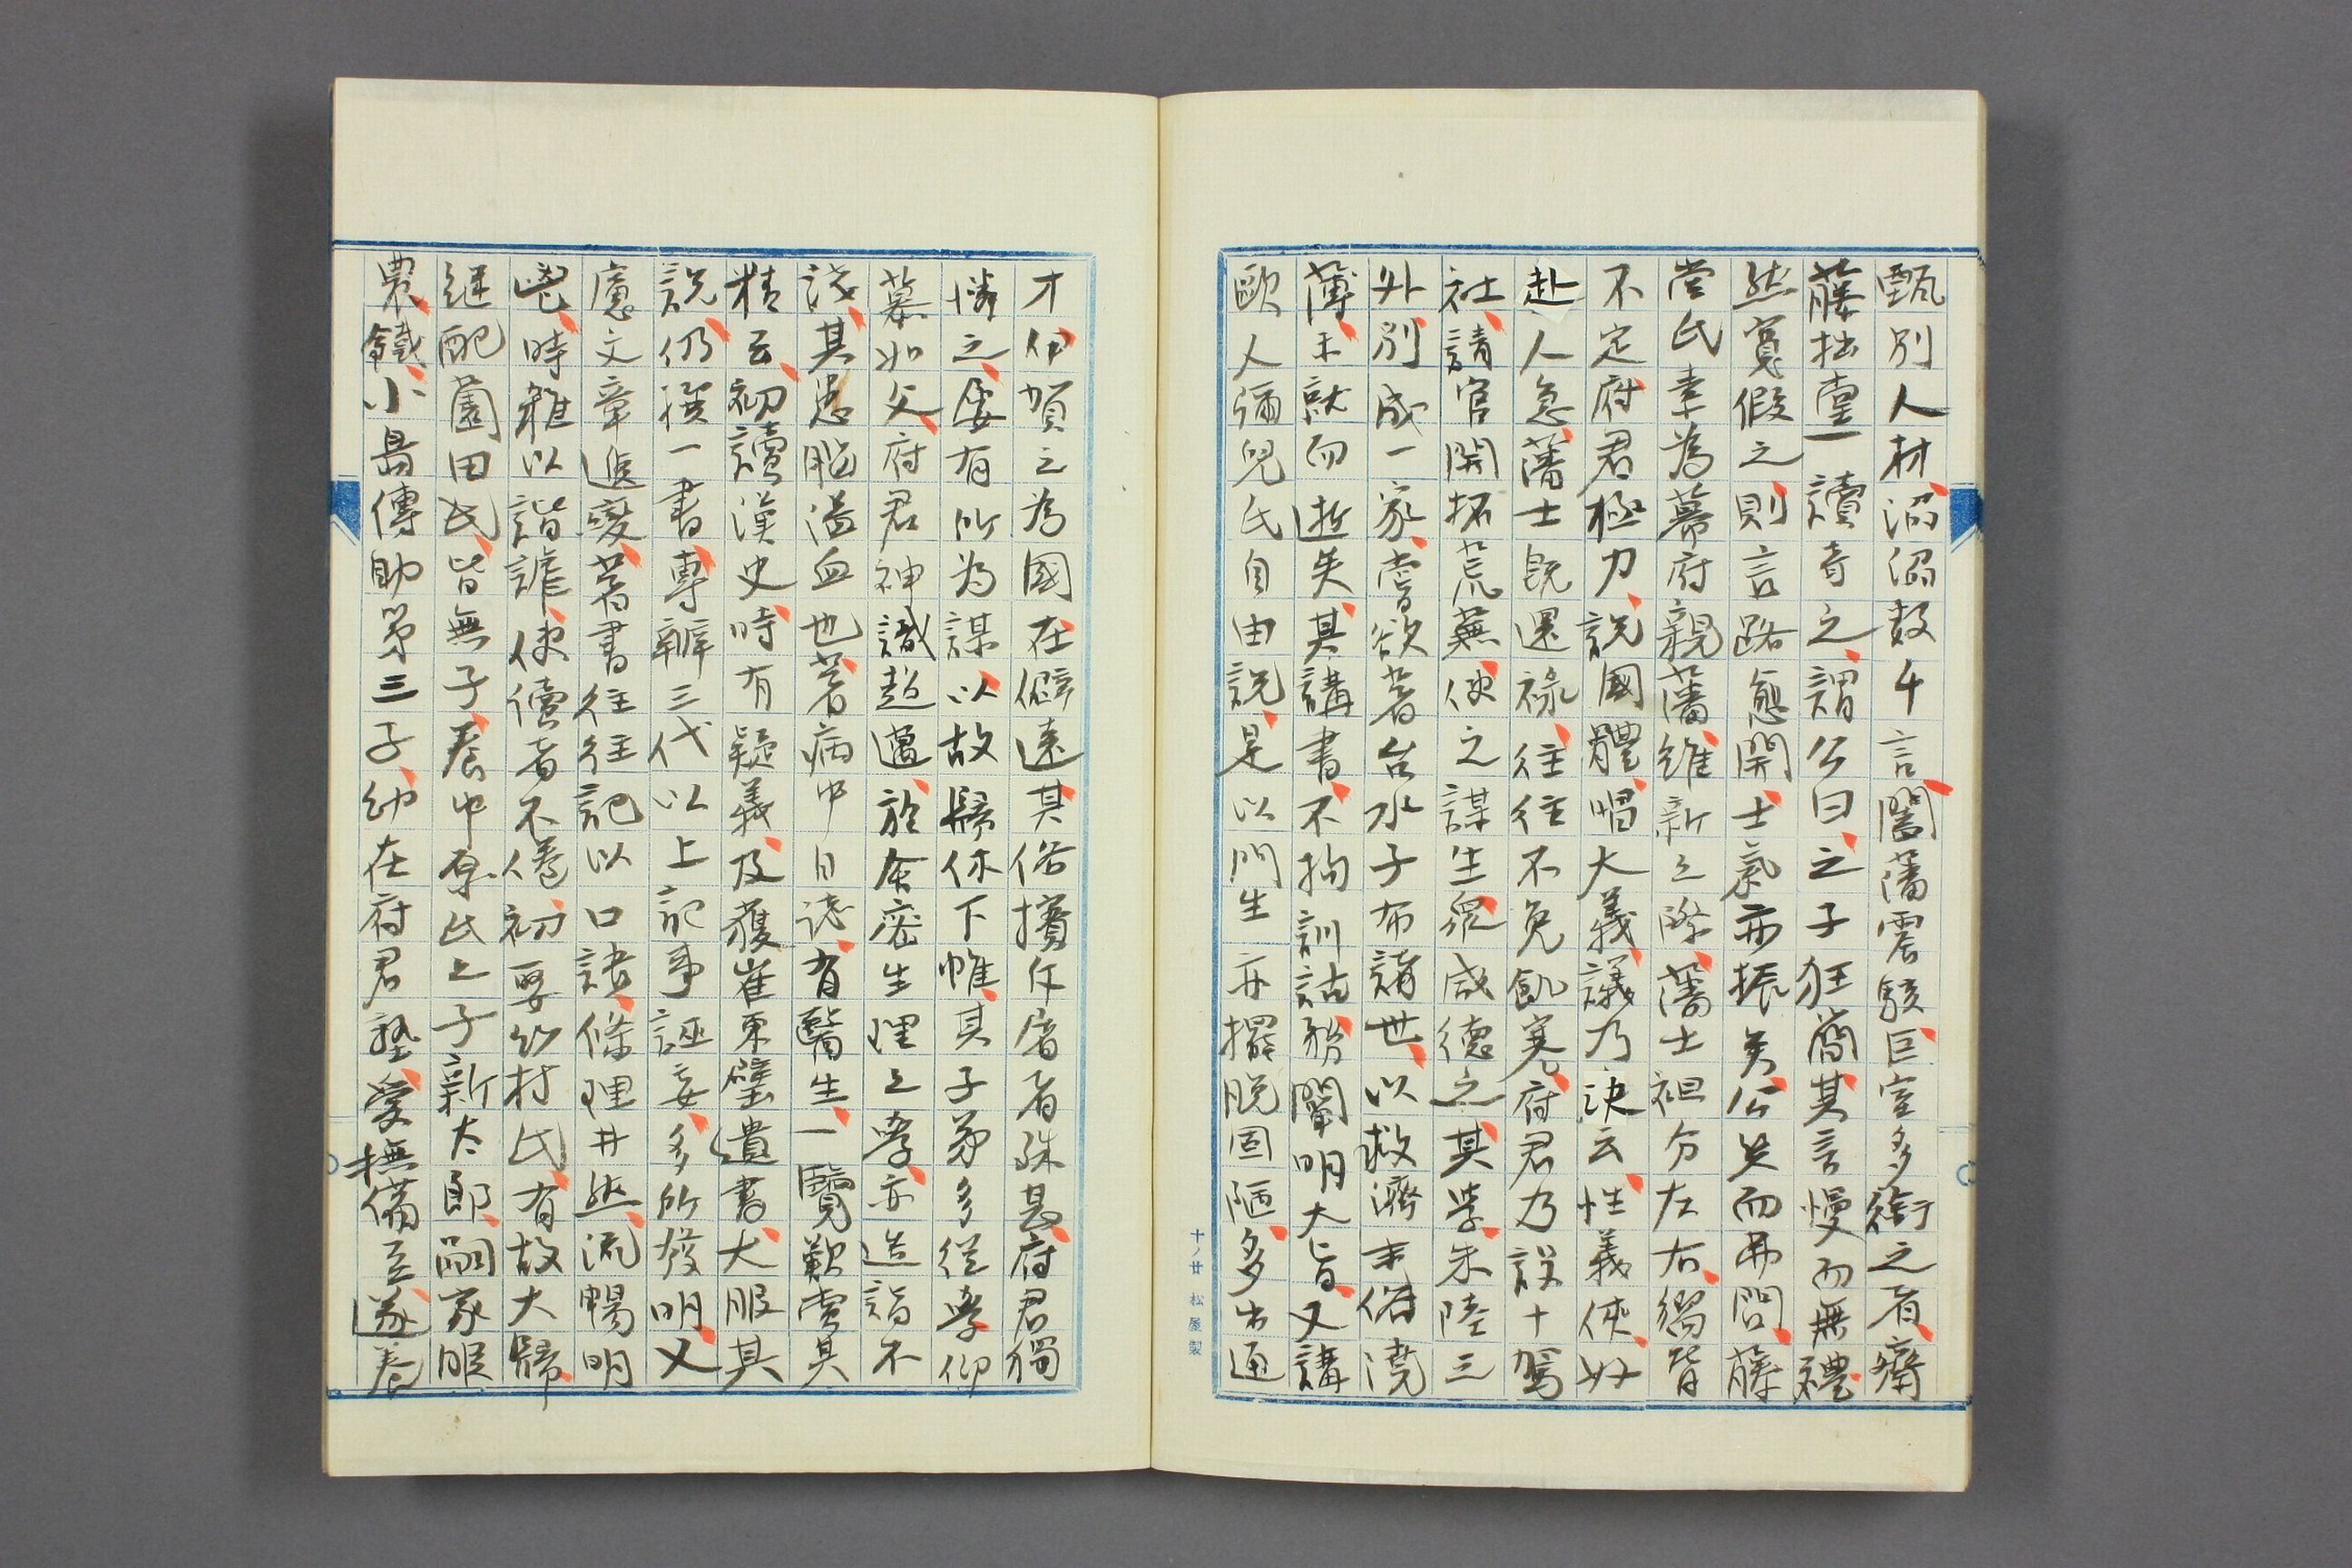 甄別人材、滔滔数千言、闔藩震駭、巨室多銜之者、齋
藤拙堂一讀奇之、謂公曰、之子狂簡、其言慢而無禮、
然寛假之、則言路愈開、士氣亦振矣、公笑而弗問、藤
堂氏素為幕府親藩、維新之際、藩士袒分左右、獨皆
不定、府君極力、説國體、唱大義、議乃決云、性義俠、好
赴人急、藩士既還禄、往往不免飢寒、府君乃設十駕
社、請官開拓荒蕪、使之謀生、衆咸德之、其学、朱陸三
外、別成一家、嘗欲著台水子布諸世、以救濟末俗澆
薄、未就而逝矣、其講書、不拘訓詁、務闡明大旨、又講
歐人彌兒氏自由説、是以門生亦擺脱固陋、多出通
才、伊賀之為國、在僻遠、其俗擯斥屠者殊甚、府君獨
憐之、屡有所為謀、以故歸休下帷、其子弟多從學、仰
慕如父、府君神識超邁、於奈密生理之学、亦造詣不
淺、其患脳溢血也、著病中日誌、有醫生、一覽歎賞其
精云、初讀漢史時、有疑義、及獲崔東壁遺書、大服其
説、仍撰一書、專辨三代以上記事誣妄、多所發明、又
慮文章遞變、著書往往記以口語、條理井然、流暢明
鬯、時雜以諧謔、使讀者不倦、初娶竹村氏、有故大歸、
継配薗田氏、皆無子、養中原氏之子新太郎、嗣家、服
農、鐵、小島傳助第三子、幼在府君塾、愛撫備至、遂養
十ノ廿 松屋製